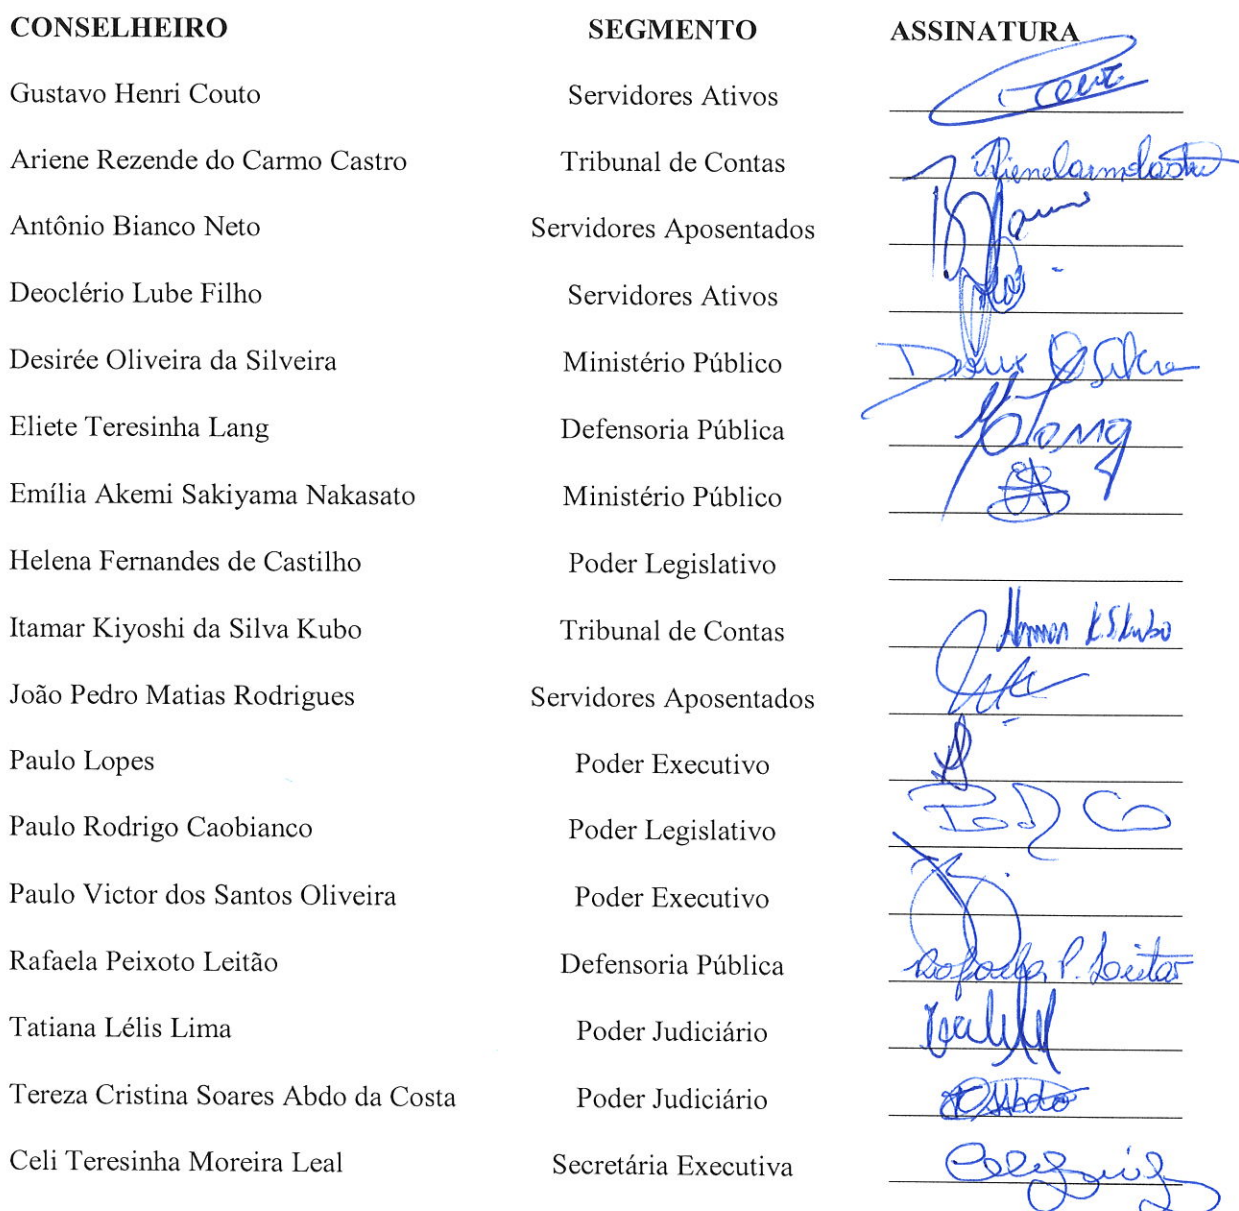 CONSELHEIRO SEGMENTO ASSINATURA
Gustavo Henri Couto Servidores Ativos
Ariene Rezende do Carmo Castro Tribunal de Contas
Antônio Bianco Neto Servidores Aposentados
Deoclério Lube Filho Servidores Ativos
Desirée Oliveira da Silveira Ministério Público
Eliete Teresinha Lang Defensoria Pública
Emília Akemi Sakiyama Nakasato Ministério Público
Helena Fernandes de Castilho Poder Legislativo
Itamar Kiyoshi da Silva Kubo Tribunal de Contas
João Pedro Matias Rodrigues Servidores Aposentados
Paulo Lopes Poder Executivo
Paulo Rodrigo Caobianco Poder Legislativo
Paulo Victor dos Santos Oliveira Poder Executivo
Rafaela Peixoto Leitão Defensoria Pública Rafaela P. Leitão
Tatiana Lélis Lima Poder Judiciário
Tereza Cristina Soares Abdo da Costa Poder Judiciário
Celi Teresinha Moreira Leal Secretária Executiva